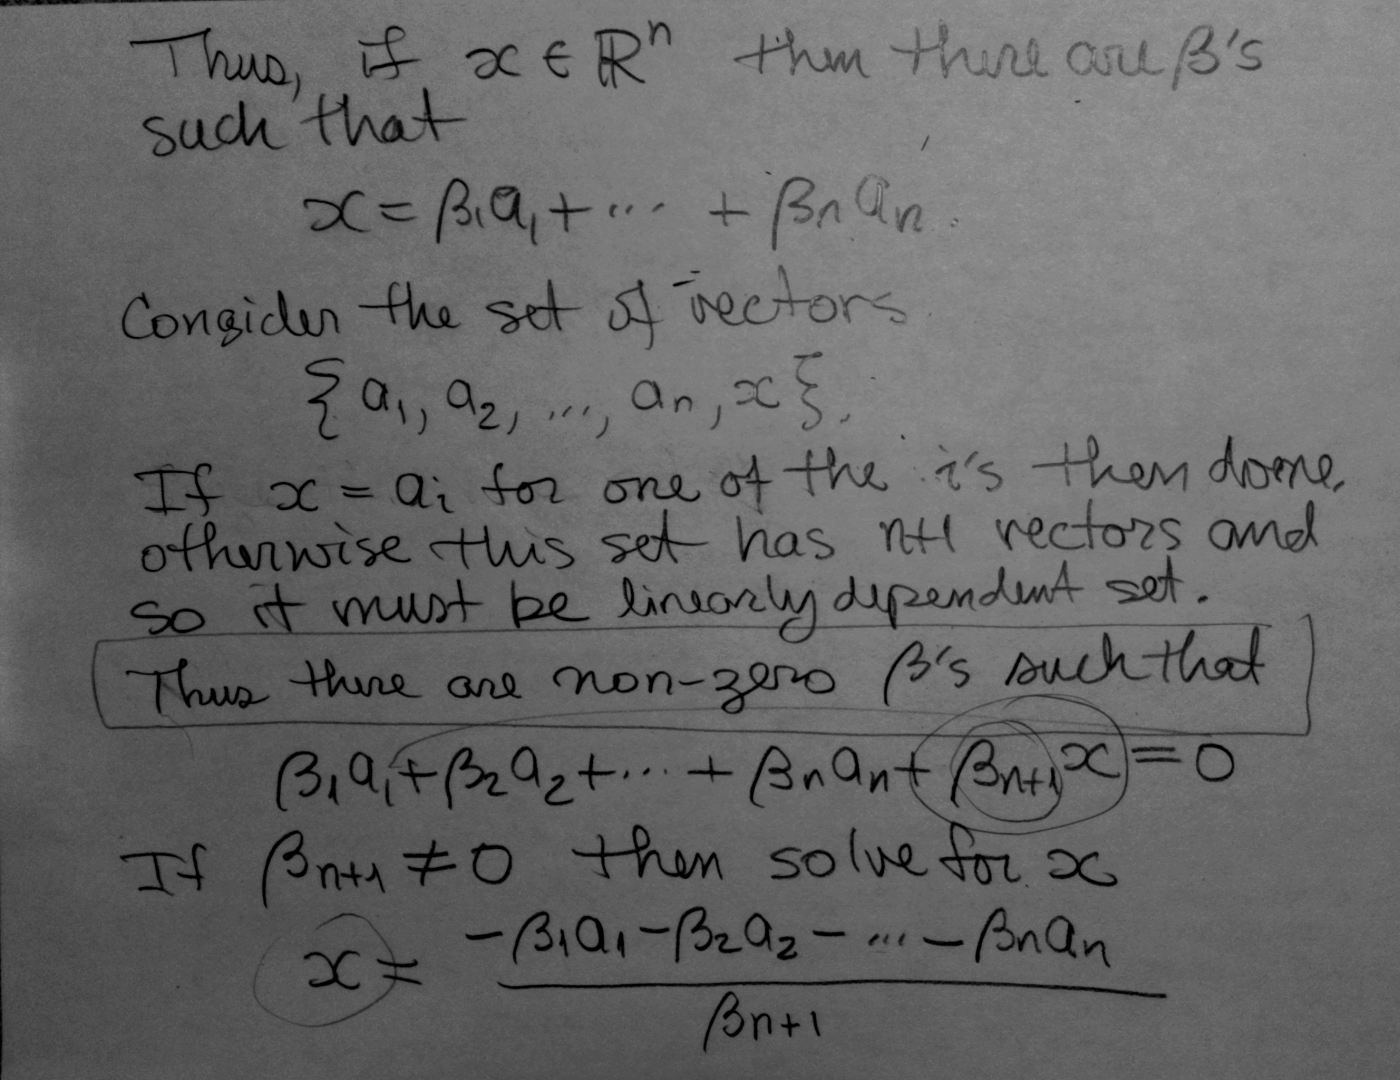 Thus, if x ∈ ℝⁿ then there are β's
such that
x = β₁a₁ + ··· + βₙaₙ.
Consider the set of vectors
{a₁, a₂, ..., aₙ, x}.
If x = aᵢ for one of the i's then done,
otherwise this set has n+1 vectors and
so it must be linearly dependent set.
Thus there are non-zero β's such that
β₁a₁ + β₂a₂ + ··· + βₙaₙ + βₙ₊₁x = 0
If βₙ₊₁ ≠ 0 then solve for x
x = (-β₁a₁ - β₂a₂ - ... - βₙaₙ) / βₙ₊₁